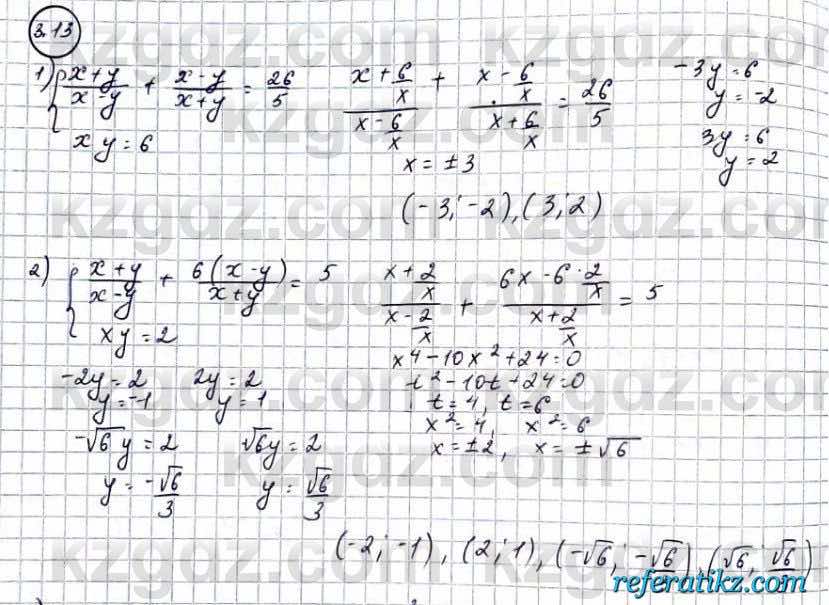 3.13
1) { (x+y)/(x-y) + (x-y)/(x+y) = 26/5
xy = 6
(x + 6/x)/(x - 6/x) + (x - 6/x)/(x + 6/x) = 26/5
x = ±3
-3y = 6
y = -2
3y = 6
y = 2
(-3; -2), (3; 2)
2) { (x+y)/(x-y) + 6(x-y)/(x+y) = 5
xy = 2
(x + 2/x)/(x - 2/x) + (6x - 6·2/x)/(x + 2/x) = 5
x4 - 10x² + 24 = 0
t² - 10t + 24 = 0
t = 4, t = 6
x² = 4, x² = 6
x = ±2, x = ±√6
-2y = 2
y = -1
2y = 2
y = 1
-√6y = 2
y = -√6/3
√6y = 2
y = √6/3
(-2; -1), (2; 1), (-√6; -√6/), (√6; √6/)
kzgdz.com
referatikz.com